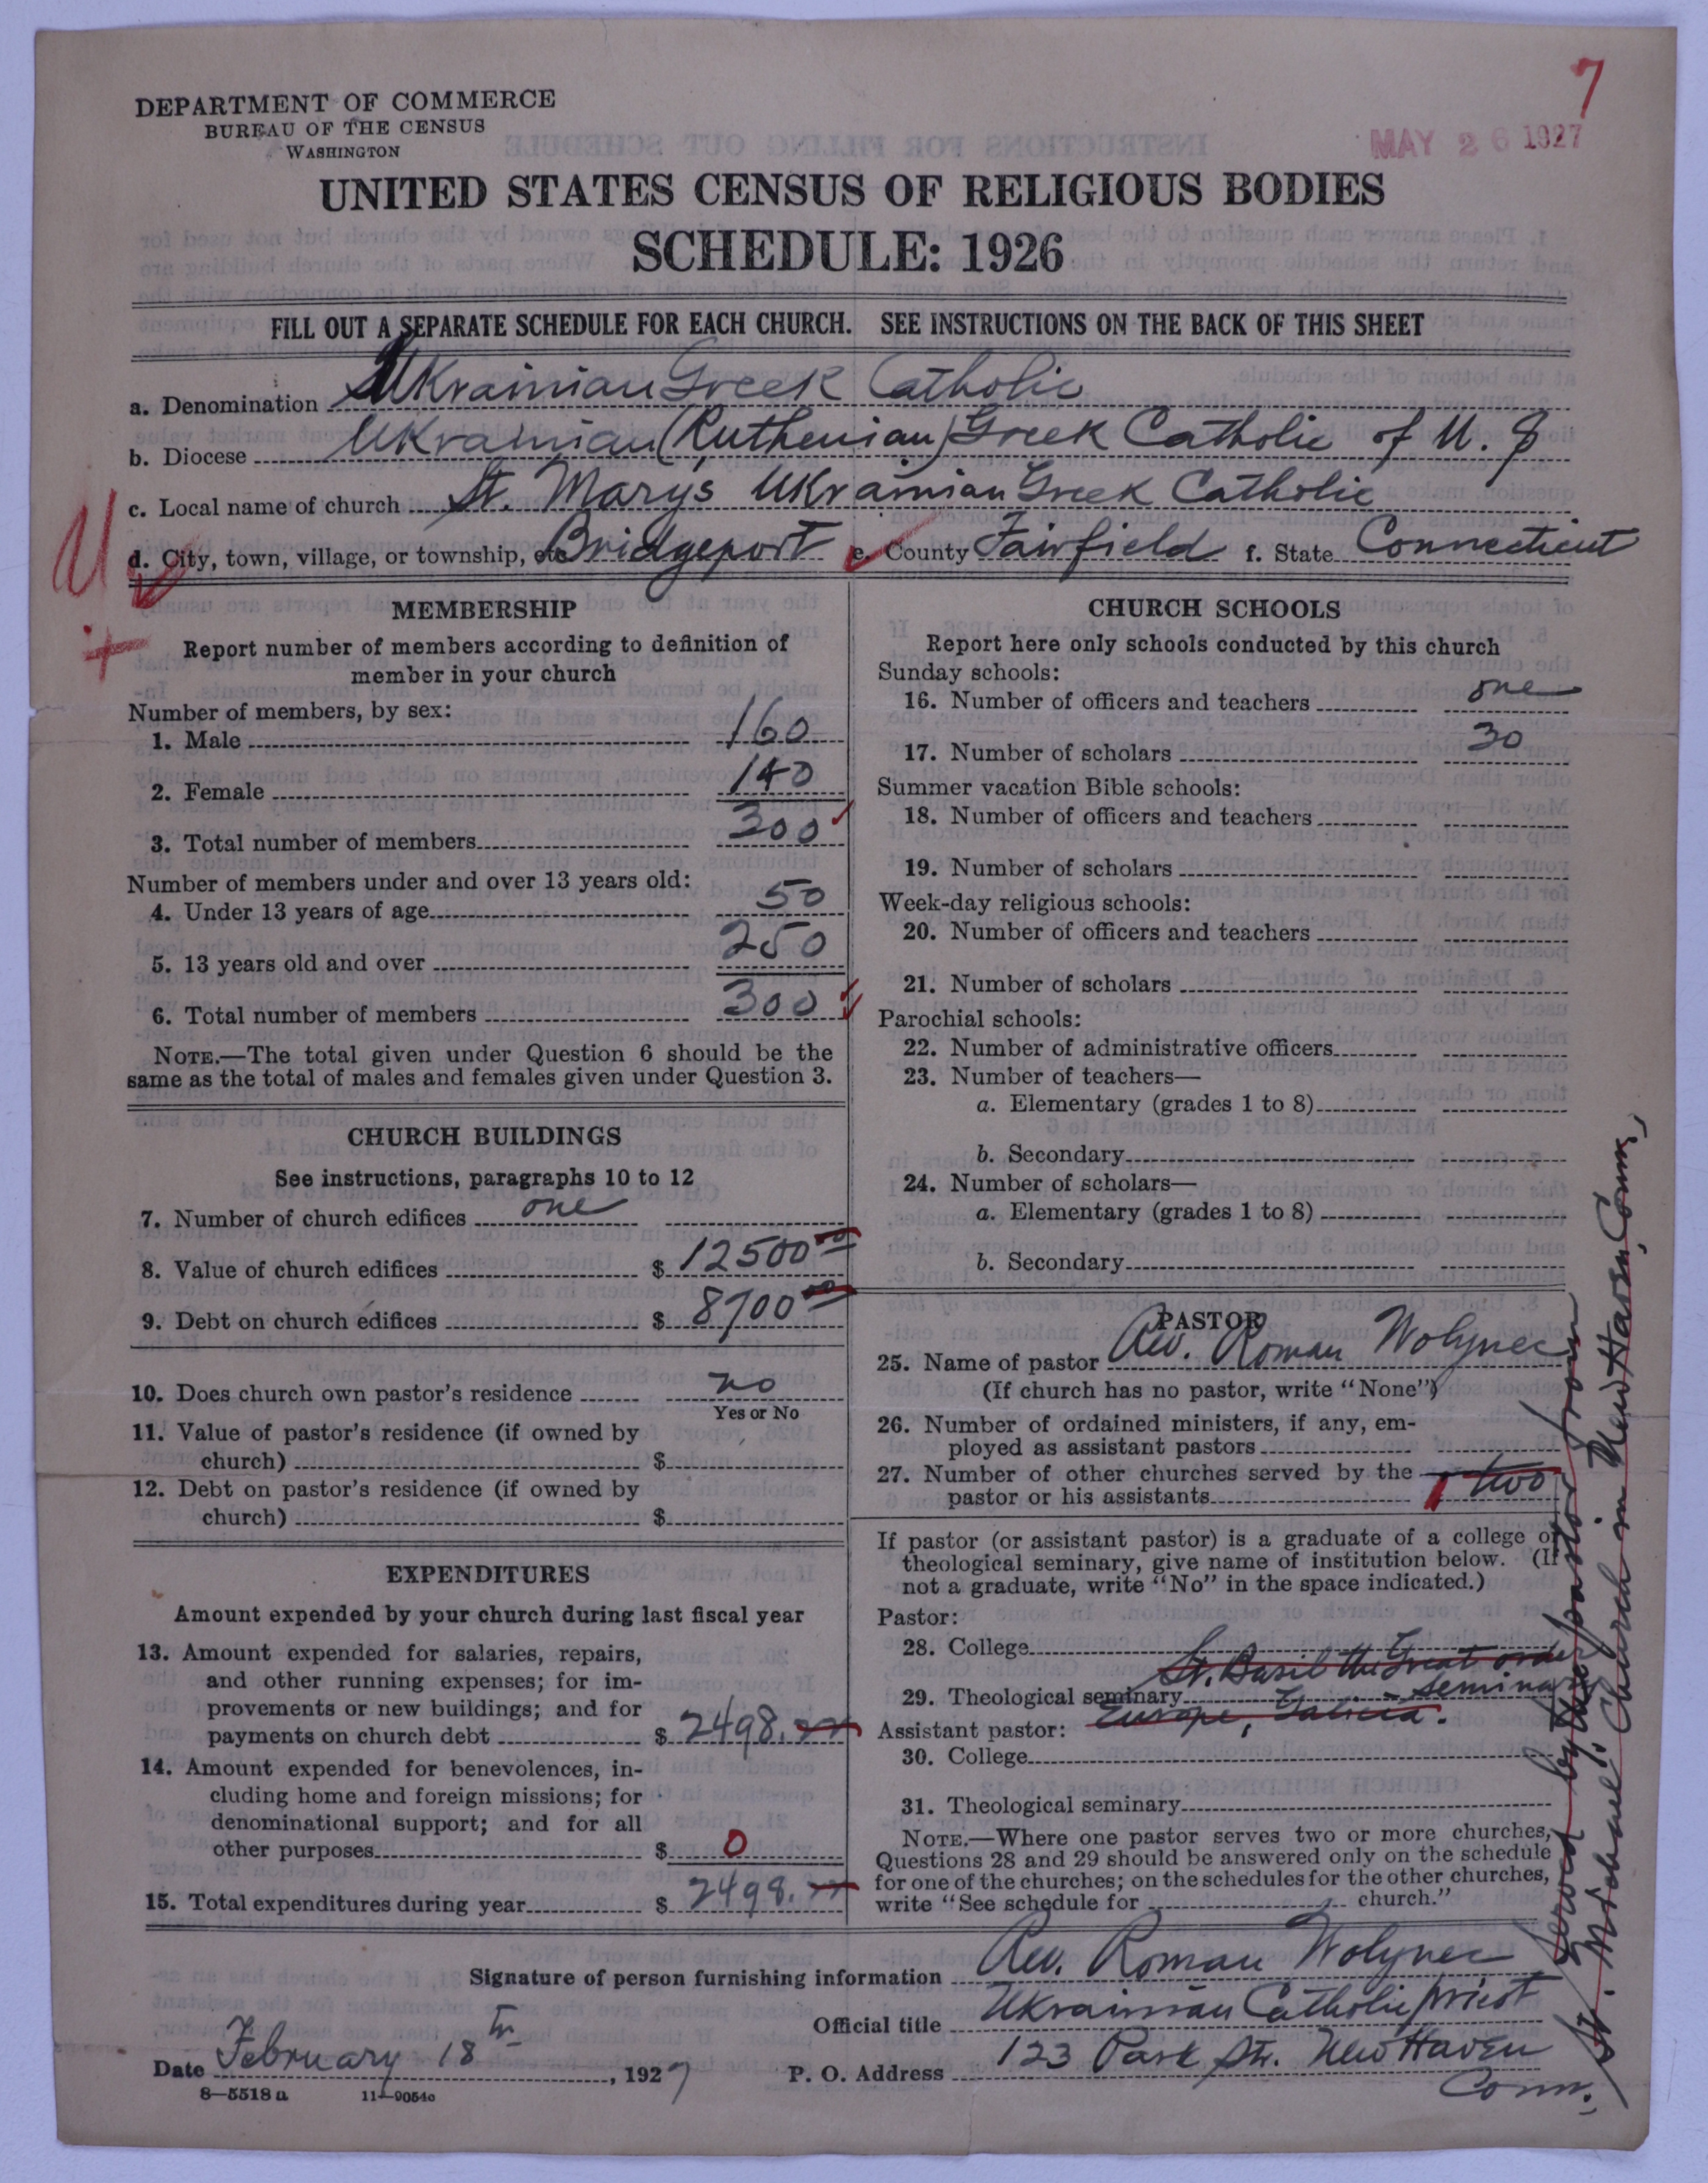 7
DEPARTMENT OF COMMERCE
BUREAU OF THE CENSUS
WASHINGTON
MAY 26 1927
UNITED STATES CENSUS OF RELIGIOUS BODIES
SCHEDULE: 1926
FILL OUT A SEPARATE SCHEDULE FOR EACH CHURCH. SEE INSTRUCTIONS ON THE BACK OF THIS SHEET
a. Denomination Ukrainian Greek Catholic
b. Diocese Ukrainian (Ruthenian) Greek Catholic of U. S
c. Local name of church St. Marys Ukrainian Greek Catholic
d. City, town, village, or township, etc Bridgeport e. County Fairfield f. State Connecticut
MEMBERSHIP
Report number of members according to definition of
member in your church
Number of members, by sex:
1. Male 160
2. Female 140
3. Total number of members 300
Number of members under and over 13 years old:
4. Under 13 years of age 50
5. 13 years old and over 250
6. Total number of members 300
NOTE.—The total given under Question 6 should be the
same as the total of males and females given under Question 3.
CHURCH BUILDINGS
See instructions, paragraphs 10 to 12
7. Number of church edifices one
8. Value of church edifices $ 12500 00
9. Debt on church edifices $ 8700 00
10. Does church own pastor's residence no
Yes or No
11. Value of pastor's residence (if owned by
church) $
12. Debt on pastor's residence (if owned by
church) $
EXPENDITURES
Amount expended by your church during last fiscal year
13. Amount expended for salaries, repairs,
and other running expenses; for im-
provements or new buildings; and for
payments on church debt $ 2498.
14. Amount expended for benevolences, in-
cluding home and foreign missions; for
denominational support; and for all
other purposes $ 0
15. Total expenditures during year $ 2498.
CHURCH SCHOOLS
Report here only schools conducted by this church
Sunday schools:
16. Number of officers and teachers one
17. Number of scholars 30
Summer vacation Bible schools:
18. Number of officers and teachers
19. Number of scholars
Week-day religious schools:
20. Number of officers and teachers
21. Number of scholars
Parochial schools:
22. Number of administrative officers
23. Number of teachers—
a. Elementary (grades 1 to 8)
b. Secondary
24. Number of scholars—
a. Elementary (grades 1 to 8)
b. Secondary
PASTOR
25. Name of pastor Rev. Roman Wolynec
(If church has no pastor, write "None")
26. Number of ordained ministers, if any, em-
ployed as assistant pastors
27. Number of other churches served by the
pastor or his assistants 1 two
If pastor (or assistant pastor) is a graduate of a college or
theological seminary, give name of institution below. (If
not a graduate, write "No" in the space indicated.)
Pastor:
28. College
St. Basil the Great order
29. Theological seminary seminary
Europe, Galicia.
Assistant pastor:
30. College
31. Theological seminary
NOTE.—Where one pastor serves two or more churches,
Questions 28 and 29 should be answered only on the schedule
for one of the churches; on the schedules for the other churches,
write "See schedule for church."
Served by the pastor from
St. Michael's Church in New Haven, Conn.,
Signature of person furnishing information Rev. Roman Wolynec
Official title Ukrainian Catholic priest
Date February 18th, 1927 P. O. Address 123 Park Str. New Haven
Conn.,
8—5518a 11—9054c